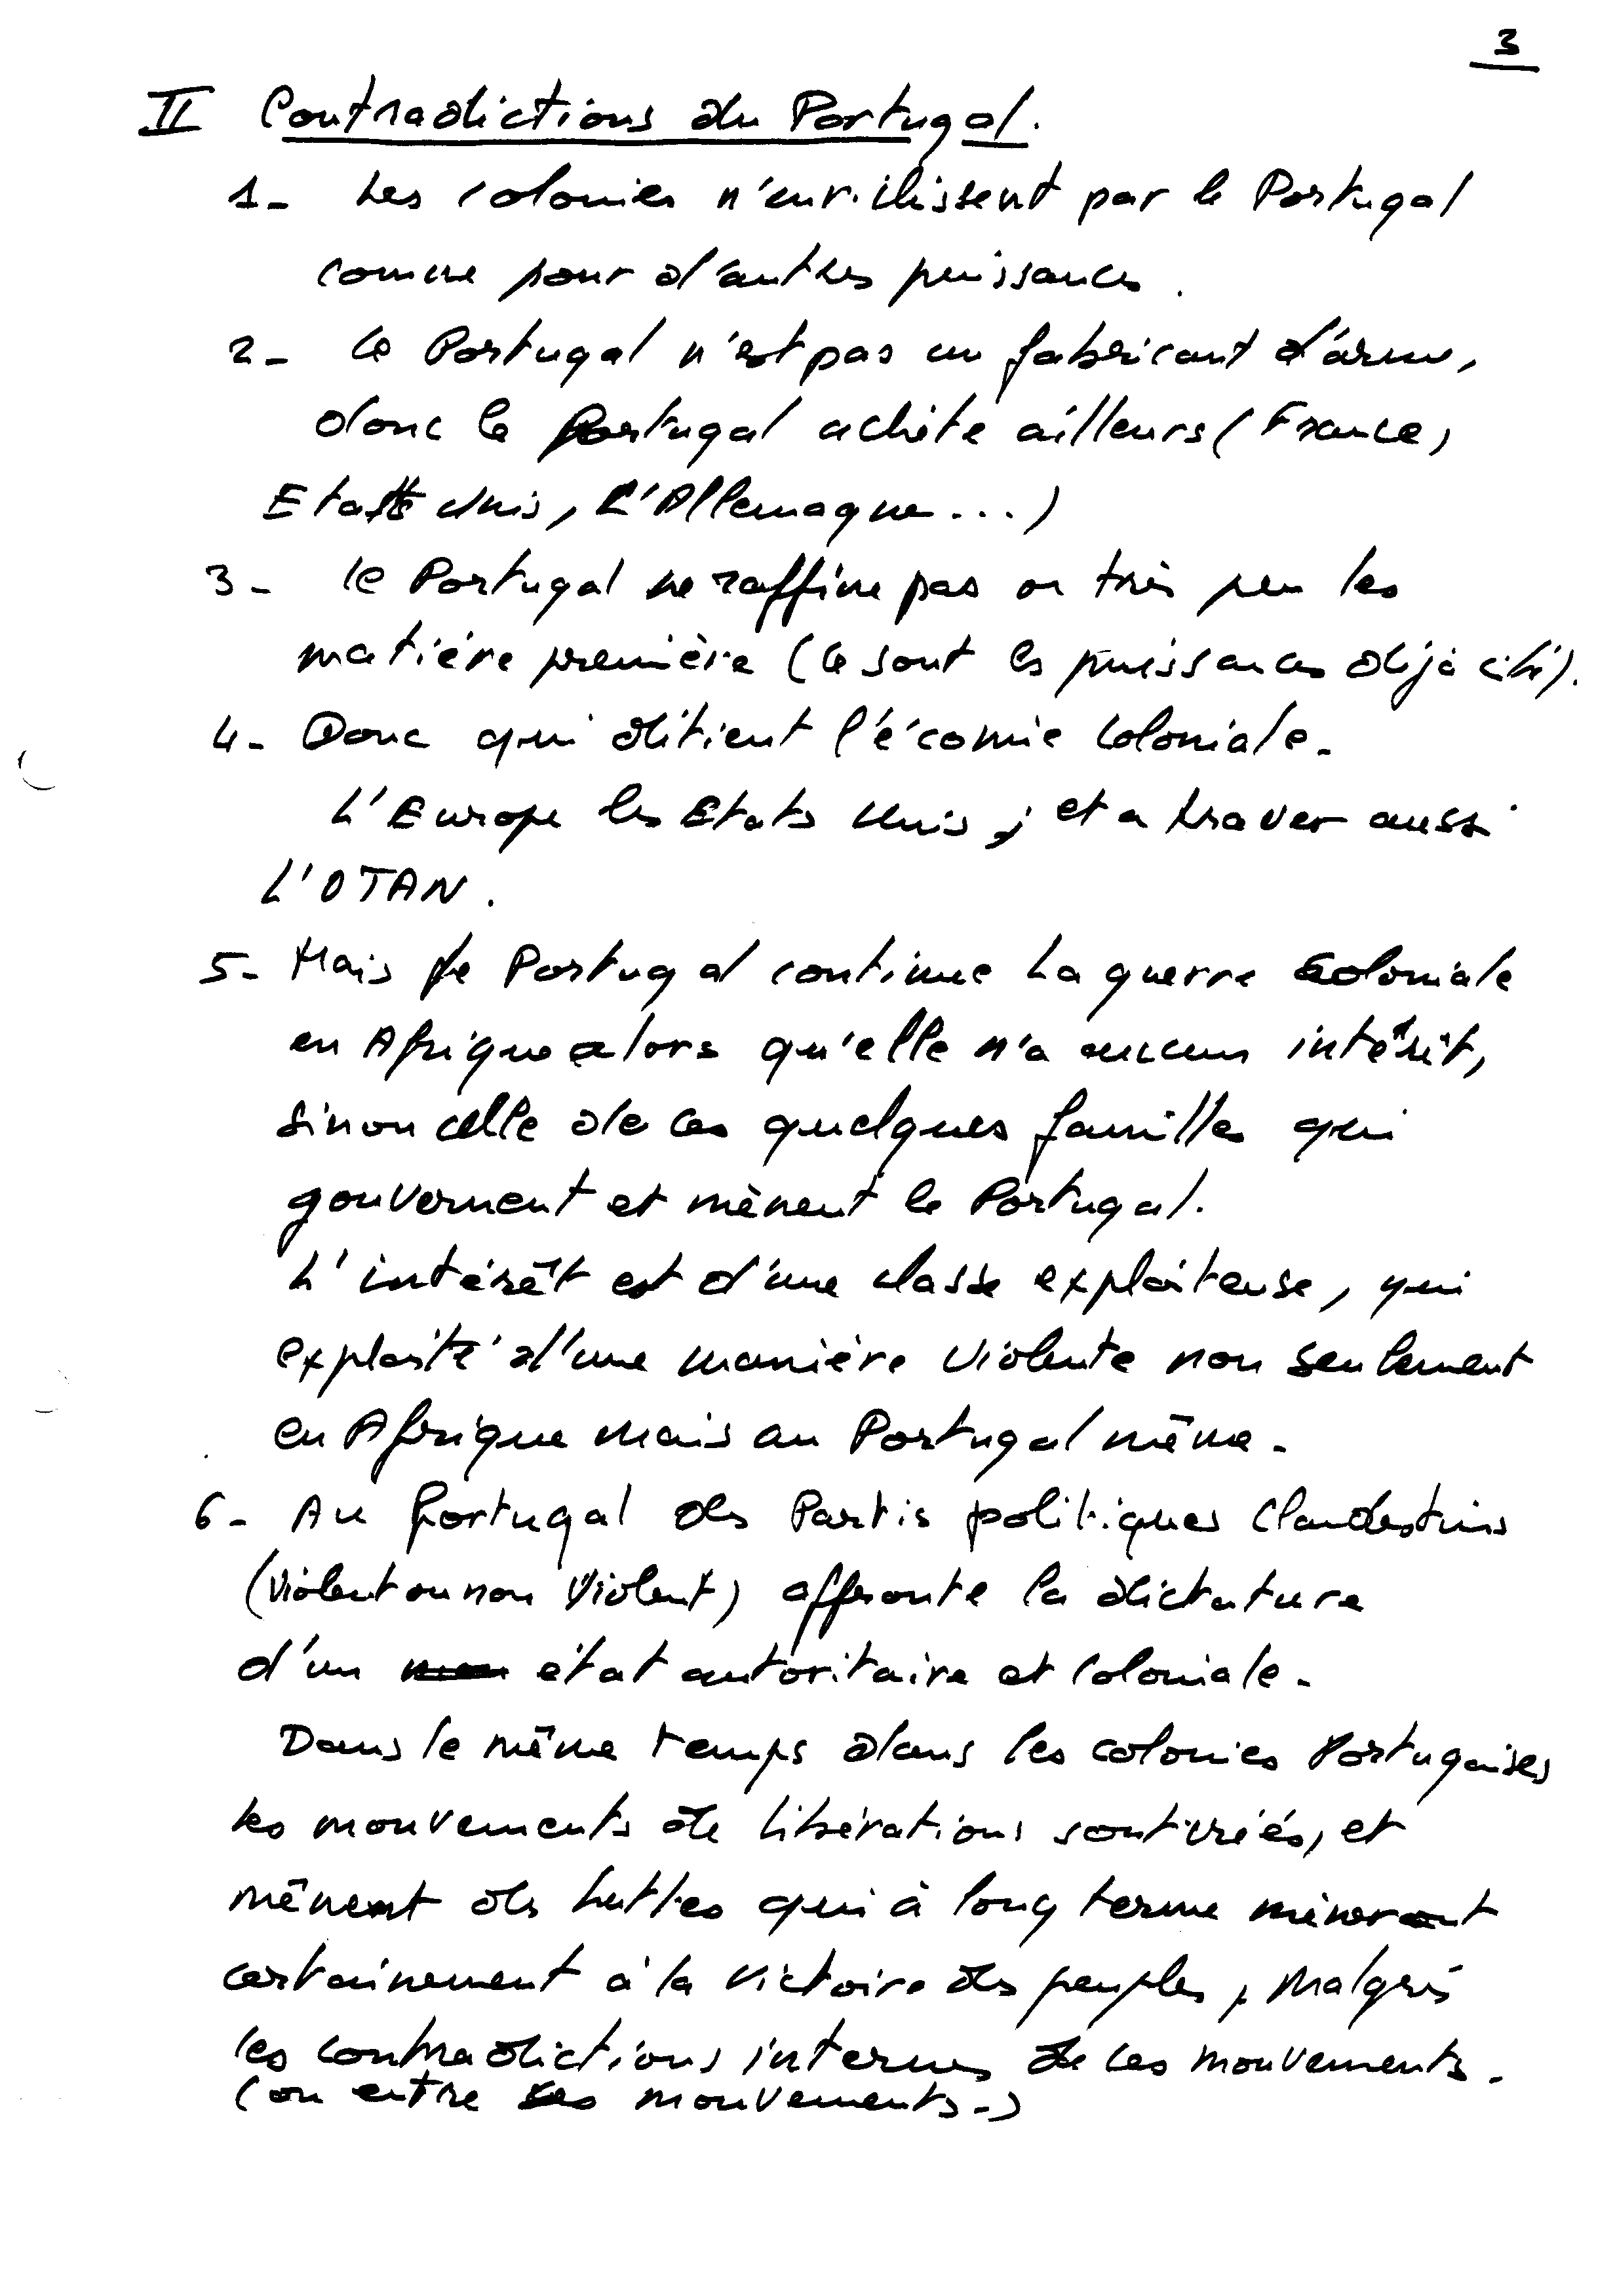 3
II Contradictions du Portugal.
1- Les colonies n'enrichissent par le Portugal
comme pour d'autres puissances.
2- Le Portugal n'est pas un fabricant d'arme,
donc le Portugal achète ailleurs (France,
Etats Unis, L'Allemagne...)
3- le Portugal ne raffine pas ou très peu les
matiére première (ce sont les puissances déjà cité).
4- Donc qui détient l'écomie coloniale.
L'Europe les Etats Unis, et a traver aussi
L'OTAN.
5- Mais le Portugal continue La guerre coloniale
en Afrique alors qu'elle n'a aucun intérêt,
sinon celle de ces quelques familles qui
gouvernent et mènent le Portugal.
L'intérêt est d'une classe exploiteuse, qui
exploité d'une maniére violente non seulement
en Afrique mais au Portugal même.
6- Au Portugal des Partis politiques Clandestins
(Violent ou non Violent) affronte la dictature
d'un état autoritaire et coloniale.
Dans le même temps dans les colonies Portugaises
les mouvements de libérations sont créés, et
mênent des luttes qui à long terme mèneront
certainement à la victoire des peuples, malgrés
les contradictions internes de ces mouvements.
(ou entre ces mouvements-)